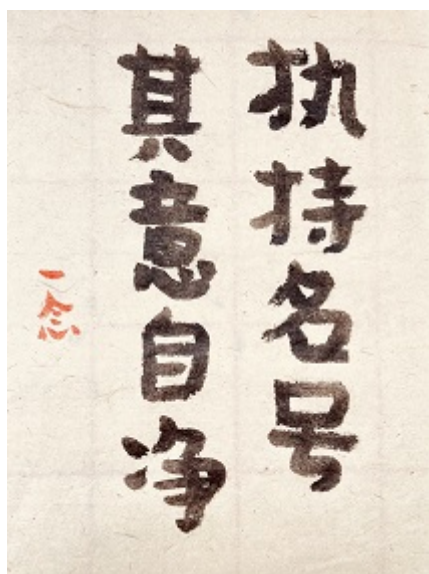 执持名号
其意自净
一念